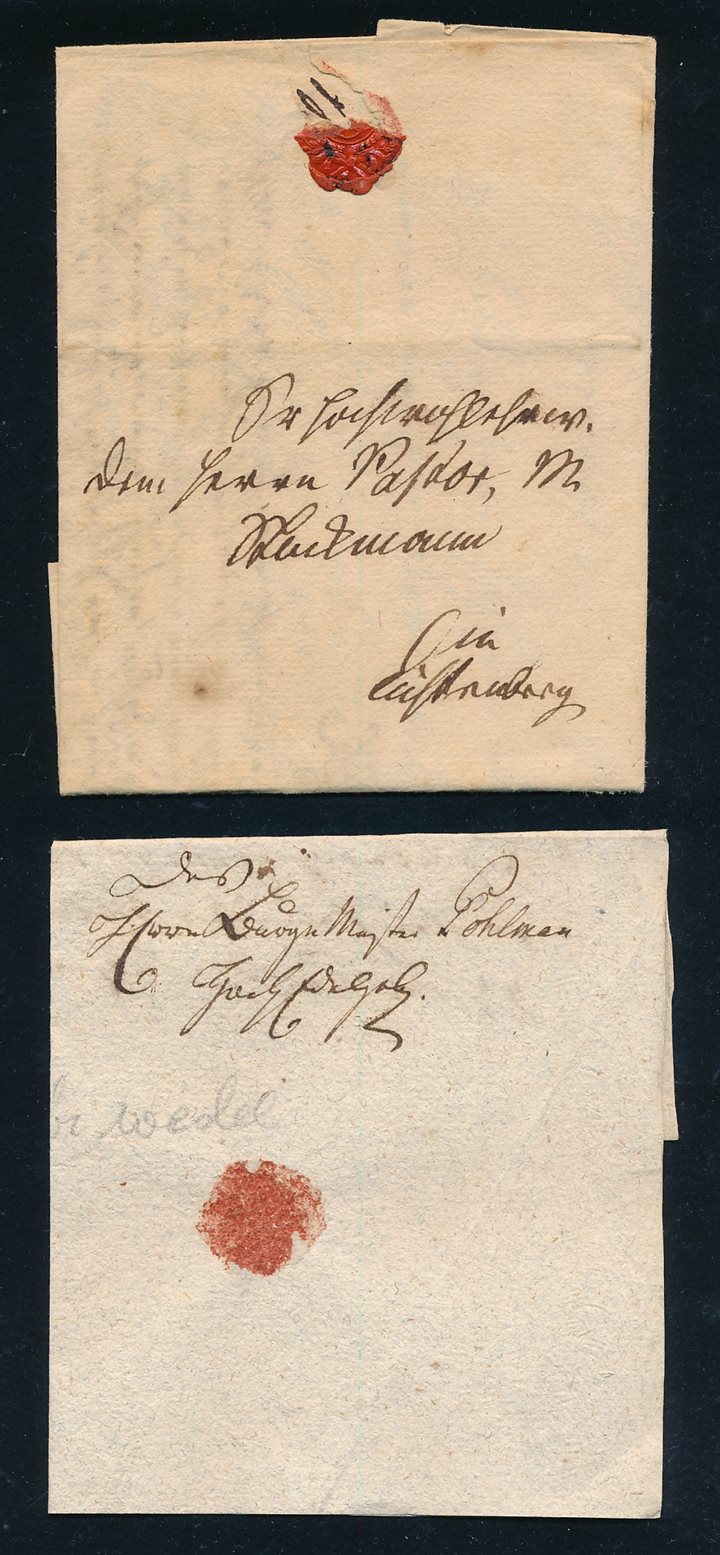 Sr Hochwohlehrw.
dem Herrn Pastor, M
Stockmann
in
Lichtenberg
Des
Herrn Burge Meister Pohlman
Hoch Edelgeb.
wedel